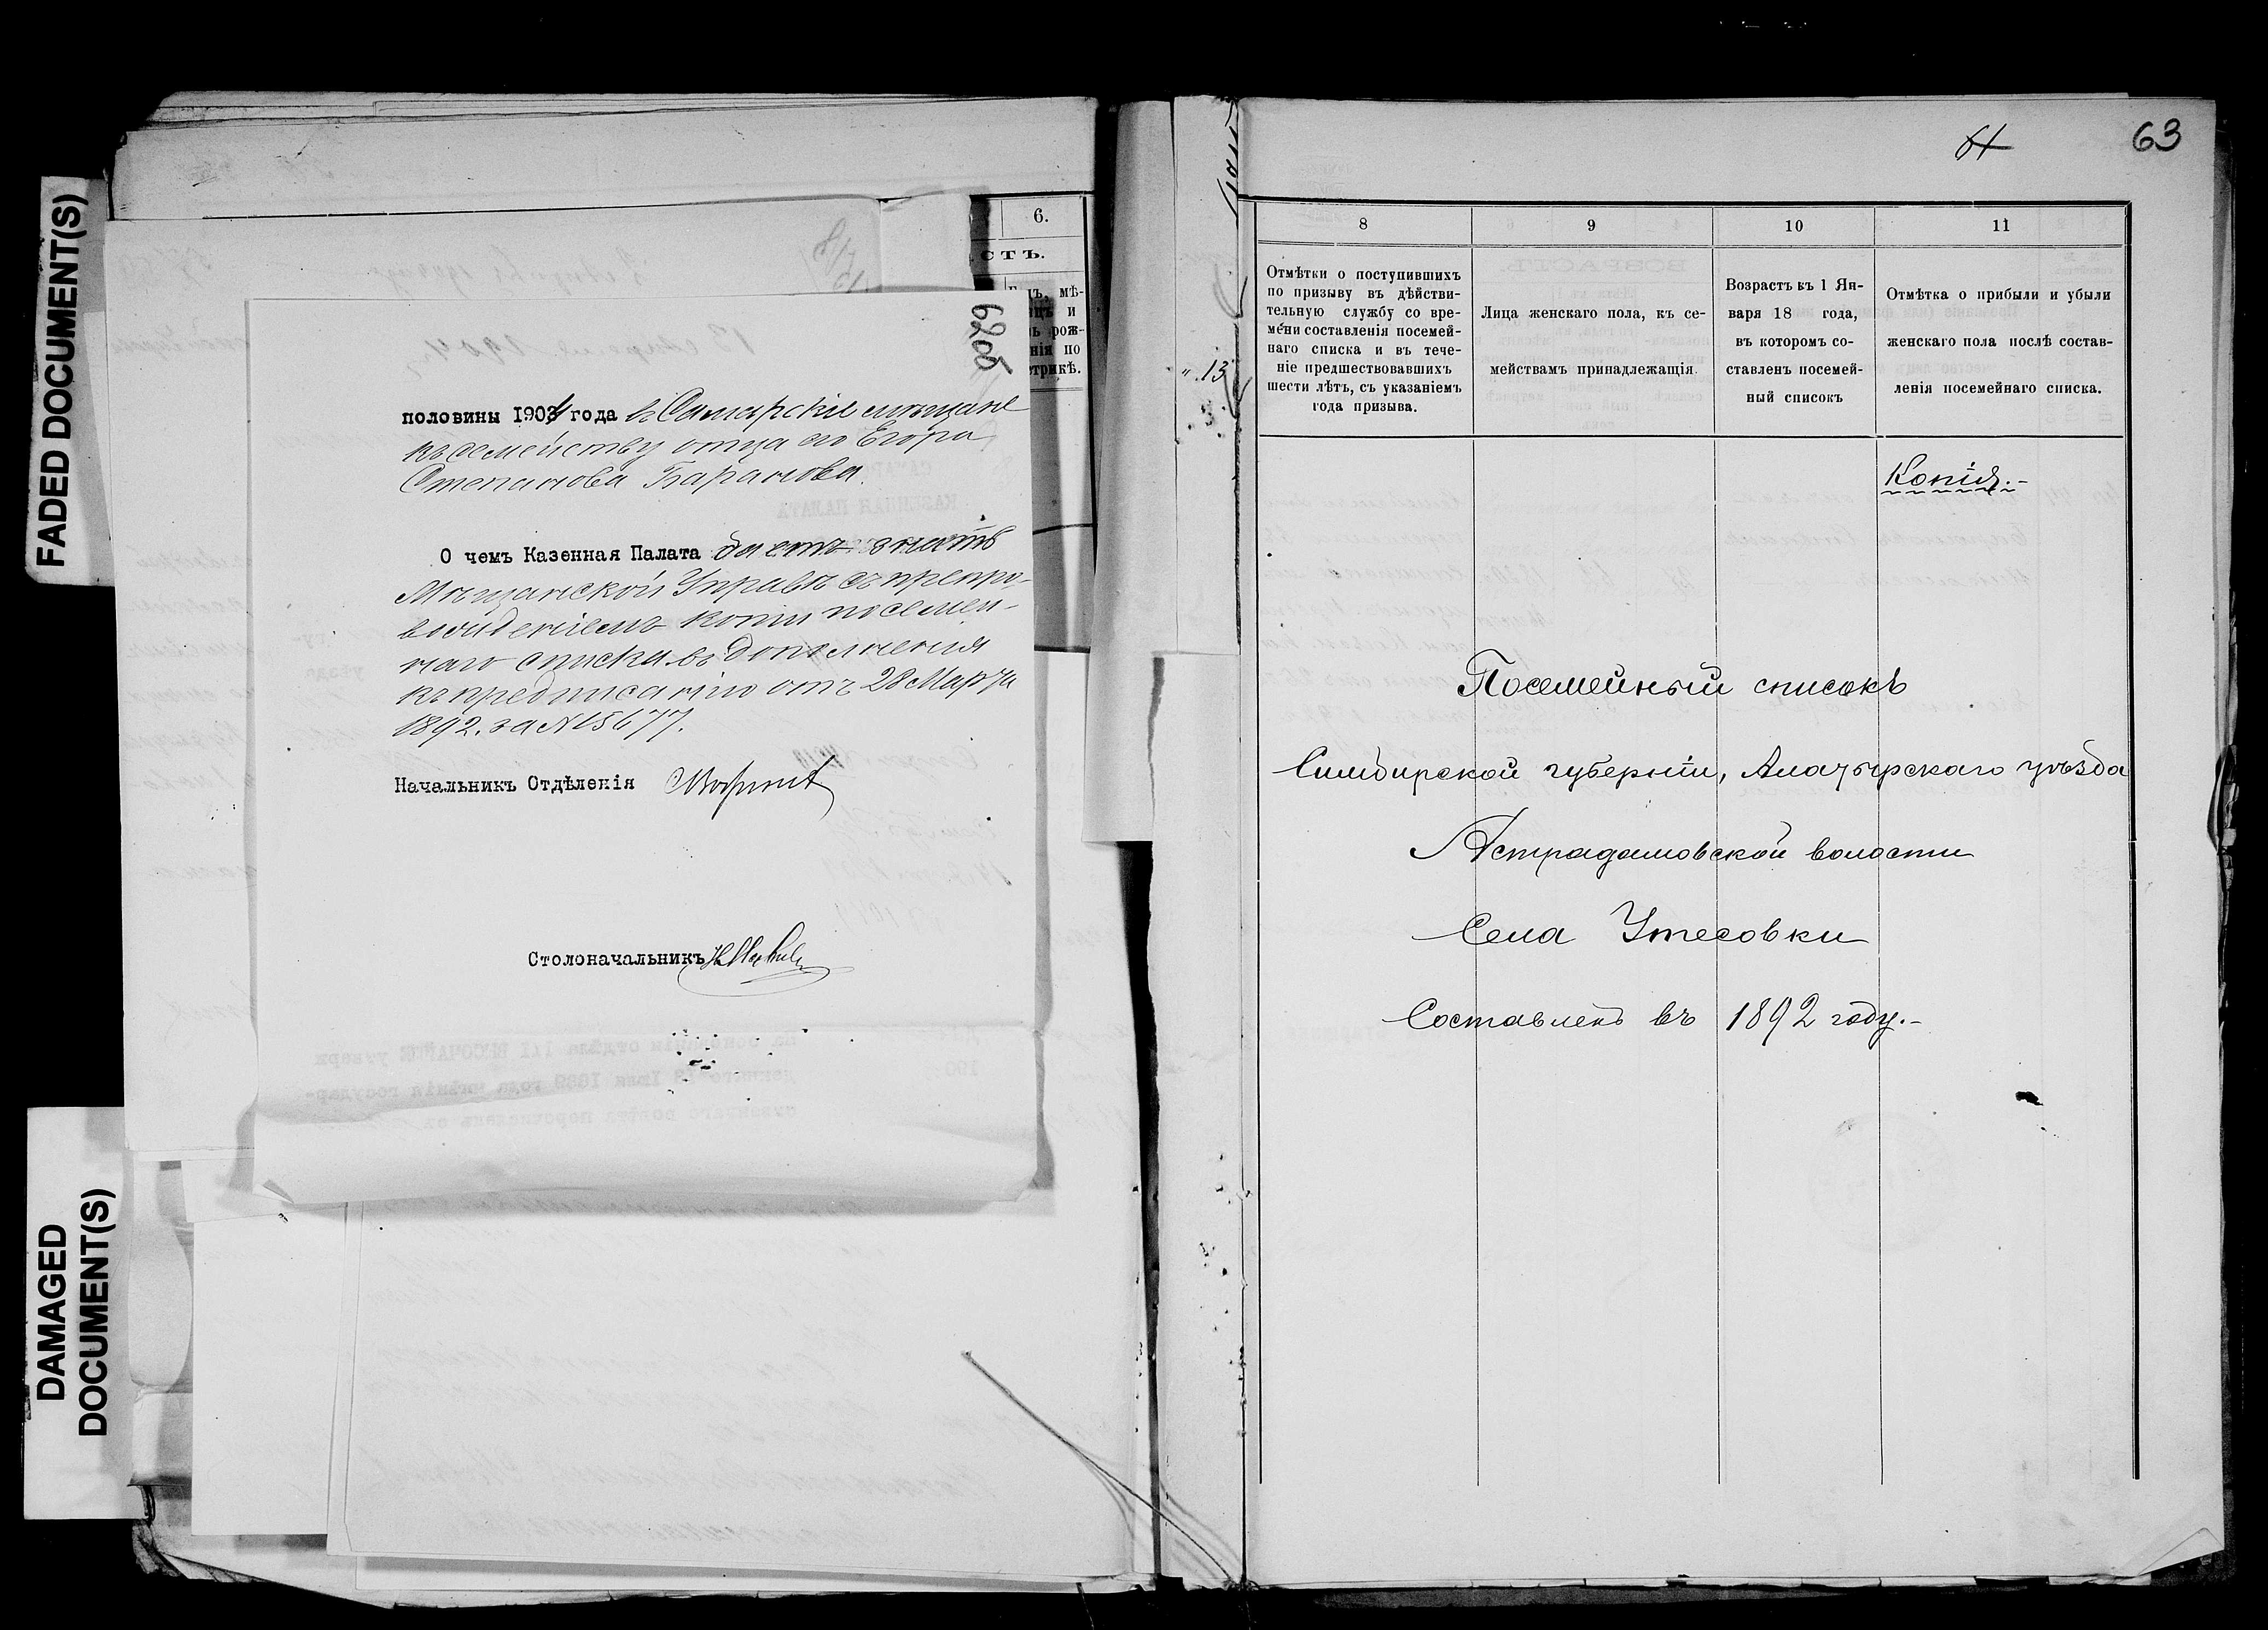 FADED DOCUMENT(S)
DAMAGED
DOCUMENT(S)
6.
СТЪ.
62об
половины 1904 года въ Самарскіе мѣщане
къ семейству отца его Егора
Степанова Баранова.
О чемъ Казенная Палата даетъ знать
Мѣщанской Управѣ съ препро-
вожденіемъ копіи посемей-
наго списка въ дополненія
къ предписанію отъ 28 Марта
1892. за № 15677.
Начальникъ Отдѣленія
Столоначальникъ
" 13
61
63
8
9
10
11
Отмѣтки о поступившихъ
по призыву въ дѣйстви-
тельную службу со вре-
мени составленія посемей-
наго списка и въ тече-
ніе предшествовавшихъ
шести лѣтъ, съ указаніемъ
года призыва.
Лица женскаго пола, къ се-
мействамъ принадлежащія.
Возрастъ къ 1 Ян-
варя 18 года,
въ которомъ со-
ставленъ посемей-
ный списокъ
Отмѣтка о прибыли и убыли
женскаго пола послѣ состав-
ленія посемейнаго списка.
Копія.-
Посемейный списокъ
Симбирской губерніи, Алатырскаго уѣзда
Астрадамовской волости
Села Утесовки
Составленъ въ 1892 году.-